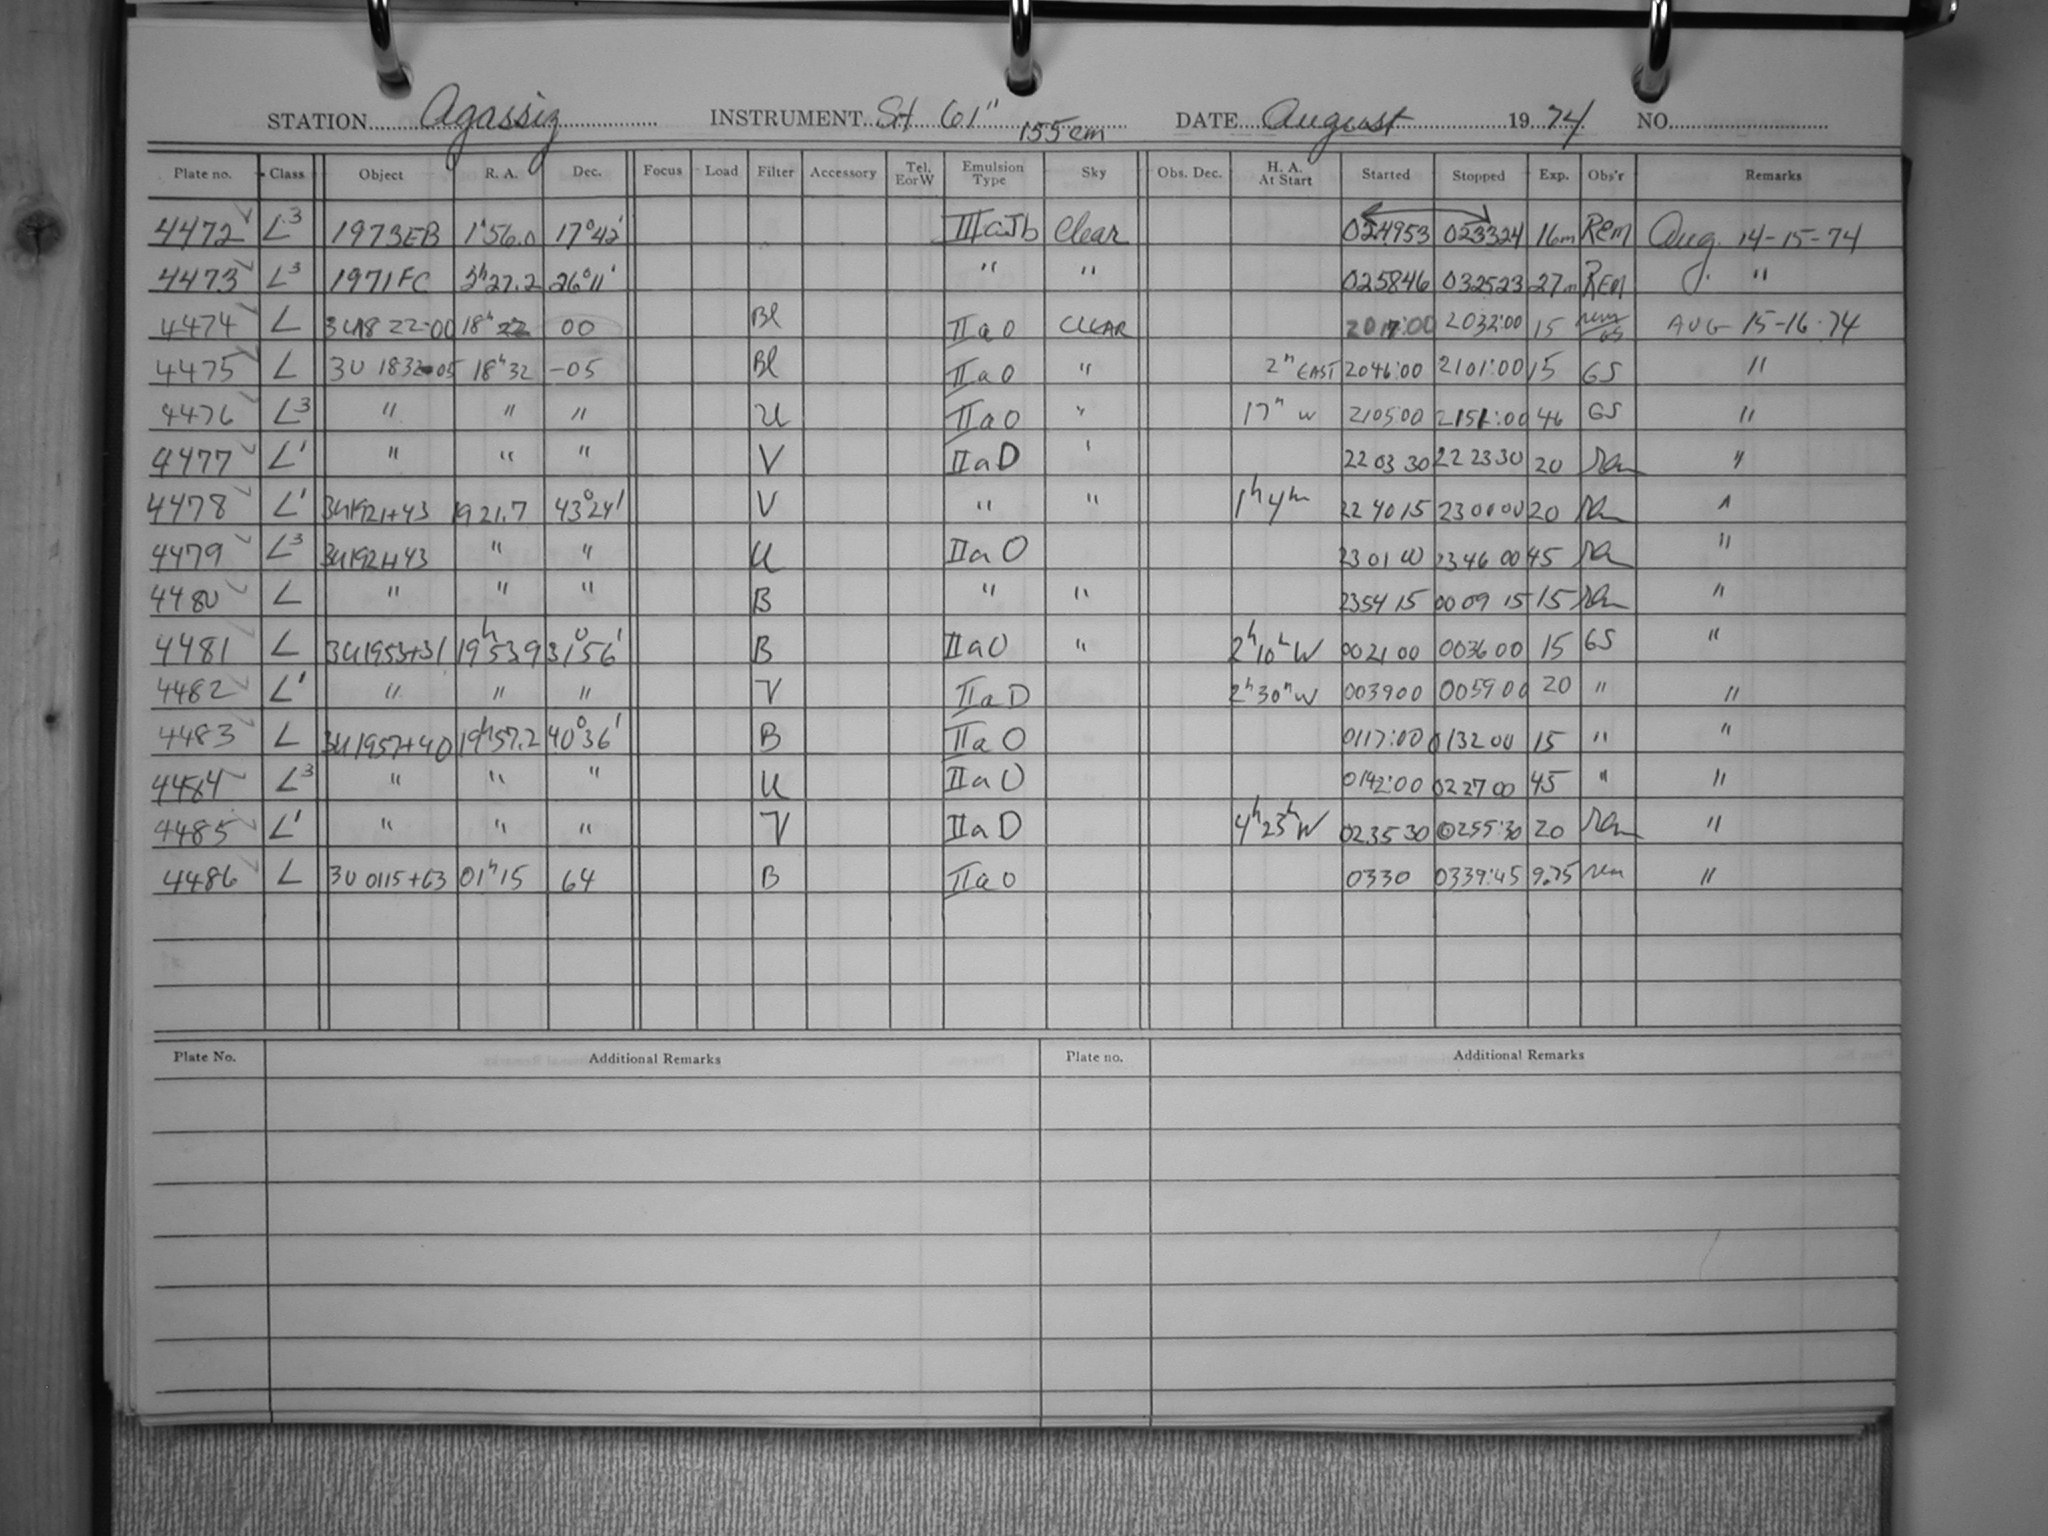 STATION Agassiz INSTRUMENT St 61" 155cm DATE August 1974 NO.
Plate no. Class Object R. A. Dec. Focus Load Filter Accessory Tel. E or W Emulsion Type Sky Obs. Dec. H. A. At Start Started Stopped Exp. Obs'r Remarks
4472 L3 1973EB 1h56.0 17°42' IIIaJb Clear 024953 023324 16m REM Aug. 14-15-74
4473 L3 1971FC 26°11' " " 025846 032523 27m REM "
4474 L 18h 22 00 Bl IIa0 CLEAR 2017:00 2032:00 15 AUG 15-16-74
4475 L 3U 1832-05 18h32 -05 Bl IIa0 " EAST 2046:00 2101:00 15 GS "
4476 L3 " " " U IIa0 " W 2105:00 2151:00 46 GS "
4477 L' " " " V IIaD ' 22 03 30 22 23 30 20 rem "
4478 L' 3U1921+43 1921.7 43°24' V " " 1h4m 22 40 15 23 00 00 20 rem "
4479 L3 3U1921+43 " " U IIaO 23 01 00 23 46 00 45 rem "
4480 L " " " B " " 2354 15 00 09 15 15 rem "
4481 L 3U1953+31 19h53.9 31°56' B IIaO " 2h10m W 0021 00 0036 00 15 GS "
4482 L' " " " V IIaD 2h30m W 003900 005900 20 " "
4483 L 3U1957+40 19h57.2 40°36' B IIaO 0117:00 013200 15 " "
4484 L3 " " " U IIaO 0142:00 022700 45 " "
4485 L' " " " V IIaD 4h23m W 0235 30 0255:30 20 rem "
4486 L 3U 0115+63 01h15 64 B IIaO 0330 0339:45 9.75 rem "
Plate No. Additional Remarks Plate no. Additional Remarks